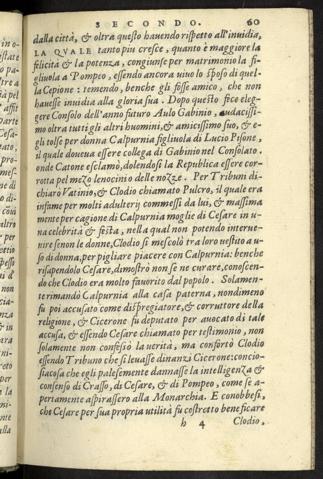 SECONDO. 60
dalla città, & oltra questo hauendo rispetto all'inuidia,
LA QVALE tanto piu cresce, quanto è maggiore la
felicità & la potenza, congiunse per matrimonio la fi-
gliuola a Pompeo, essendo ancora uiuo lo sposo di quel-
la Cepione: temendo, benche gli fosse amico, che non
hauesse inuidia alla gloria sua. Dopo questo fico eleg-
gere Consolo dell'anno futuro Aulo Gabinio, audacissi-
mo oltra tutti gli altri huomini, & amicissimo suo, & e-
gli tolse per donna Calpurnia figliuola di Lucio Pisone,
il quale doueua essere collega di Gabinio nel Consolato,
onde Catone esclamò, dolendosi la Republica essere cor-
rotta pel mezo lenocinio delle nozze. Per Tribuni di-
chiarò Vatinio, & Clodio chiamato Pulcro, il quale era
infame per molti adulterij commessi da lui, & massima
mente per cagione di Calpurnia moglie di Cesare in u-
na celebrità & festa, nella qual non potendo interue-
nire se non le donne, Clodio si mescolò tra loro uestito a u-
so di donna, per pigliare piacere con Calpurnia: benche
risapendolo Cesare, dimostrò non se ne curare, conoscen-
do che Clodio era molto fauorito dal popolo. Solamen-
te rimandò Calpurnia alla casa paterna, nondimeno
fu poi accusato come dispregiatore, & corruttore della
religione, & Cicerone fu deputato per auocato di tale
accusa, & essendo Cesare chiamato per testimonio, non
solamente non confessò la uerità, ma confortò Clodio
essendo Tribuno che si leuasse dinanzi Cicerone: concio-
siacosa che egli palesemente dannasse la intelligenza &
consenso di Crasso, di Cesare, & di Pompeo, come se a-
pertamente aspirassero alla Monarchia. E conobbesi,
che Cesare per sua propria utilità fu costretto beneficare
h 4 Clodio,